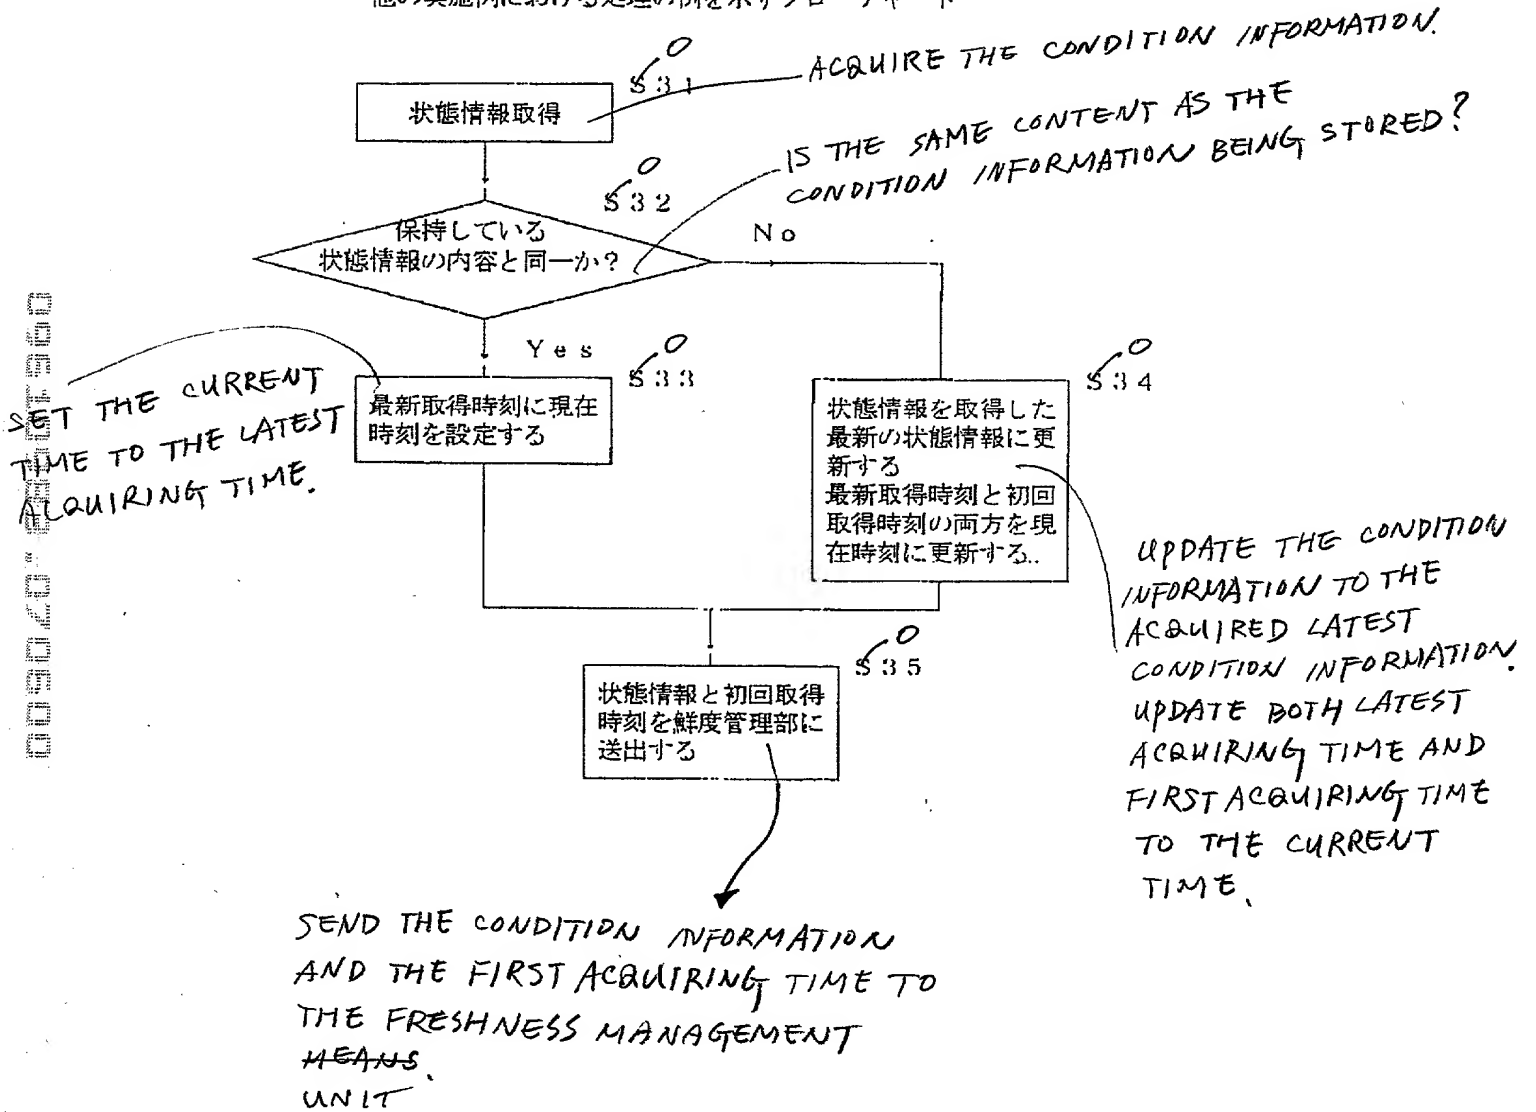 他の実施例における処理の例を示すフローチャート
0
S31
ACQUIRE THE CONDITION INFORMATION.
状態情報取得
IS THE SAME CONTENT AS THE
CONDITION INFORMATION BEING STORED?
0
S32
保持している
状態情報の内容と同一か?
No
Yes
0
S33
0
S34
SET THE CURRENT
TIME TO THE LATEST
ACQUIRING TIME.
最新取得時刻に現在
時刻を設定する
状態情報を取得した
最新の状態情報に更
新する
最新取得時刻と初回
取得時刻の両方を現
在時刻に更新する..
UPDATE THE CONDITION
INFORMATION TO THE
ACQUIRED LATEST
CONDITION INFORMATION.
UPDATE BOTH LATEST
ACQUIRING TIME AND
FIRST ACQUIRING TIME
TO THE CURRENT
TIME.
0
S35
状態情報と初回取得
時刻を鮮度管理部に
送出する
SEND THE CONDITION INFORMATION
AND THE FIRST ACQUIRING TIME TO
THE FRESHNESS MANAGEMENT
MEANS.
UNIT